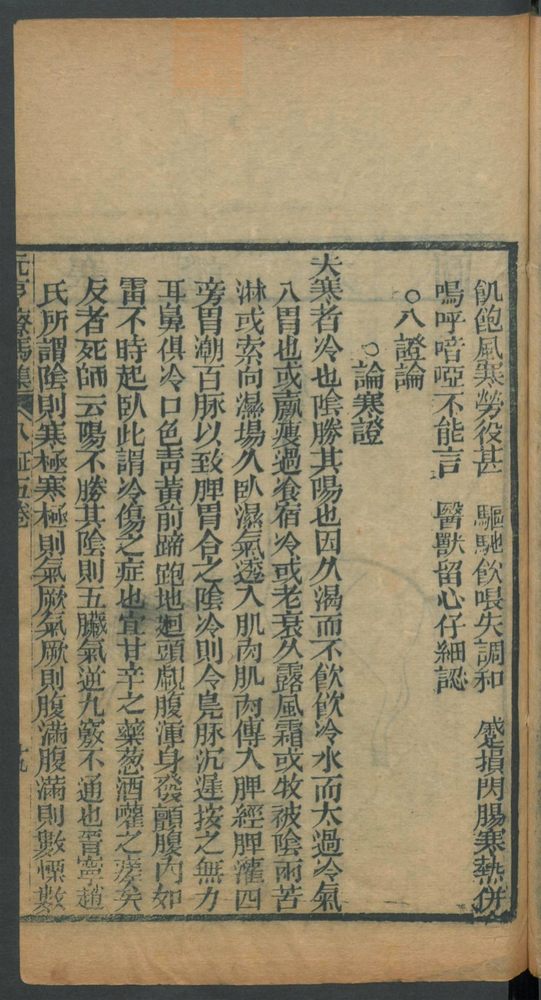 飢飽風寒勞役甚　驅馳飲喂失調和　蹙損閃腸寒熱併
嗚呼喑啞不能言　醫獸留心仔細認
○八證論
○論寒證
夫寒者冷也陰勝其陽也因久渴而不飲飲冷水而太過冷氣
入胃也或羸瘦過飡宿冷或老衰久露風霜或牧被陰雨苦
淋或索向濕場久臥濕氣透入肌肉肌肉傳入脾經脾灌四
旁胃潮百脉以致脾胃合之陰冷則令鳬脉沉遲按之無力
耳鼻俱冷口色靑黃前蹄跑地廻頭覷腹渾身發顫腹內如
雷不時起臥此謂冷傷之症也宜甘辛之藥葱酒嚾之瘥矣
反者死師云陽不勝其陰則五臟氣逆九竅不通也晋寧趙
氏所謂陰則寒極寒極則氣厥氣厥則腹滿腹滿則數慄數
元亨療馬集　八証五卷　十九